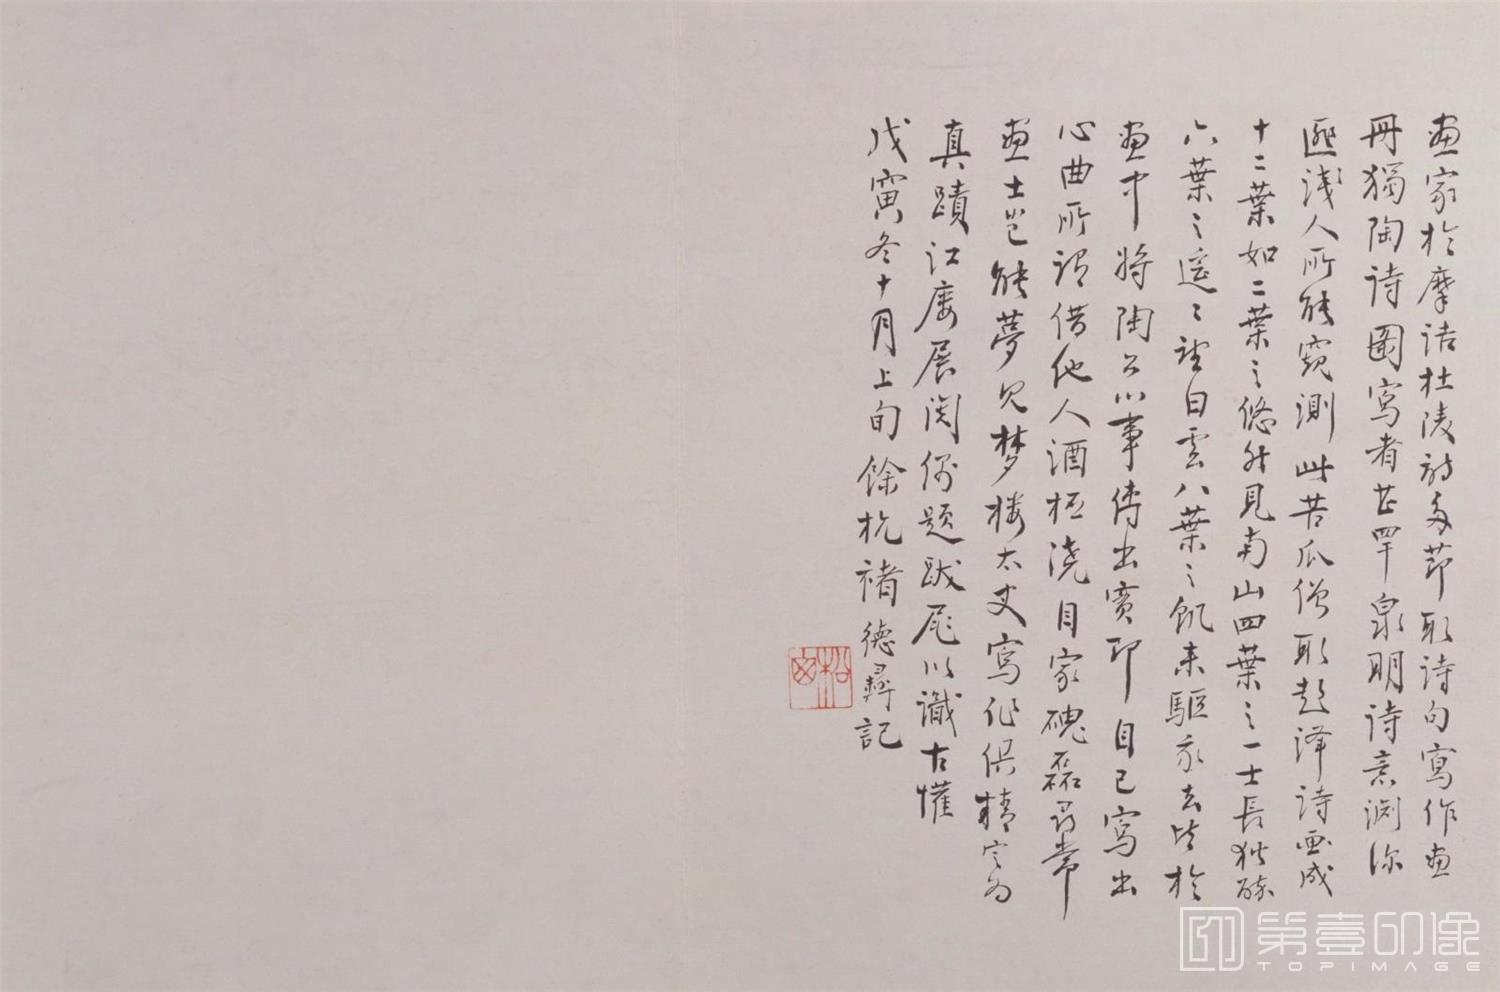 畫家於摩詰杜陵詩多節取詩句寫作畫
冊獨陶詩圖寫者甚罕泉明詩意淵深
匪淺人所能窺測此苦瓜僧取彭澤詩畫成
十二葉如二葉之悠然見南山四葉之一士長獨醉
六葉之遙遙望白雲八葉之飢來驅我去皆於
畫中將陶公心事傳出實即自己寫出
心曲所謂借他人酒杯澆自家磈磊尋常
畫士豈能夢見夢樓太丈寫作俱精定為
真蹟江廔展閱係題跋尾以識古懽
戊寅冬十月上旬餘杭褚德彝記
松窗
第壹印像
TOPIMAGE